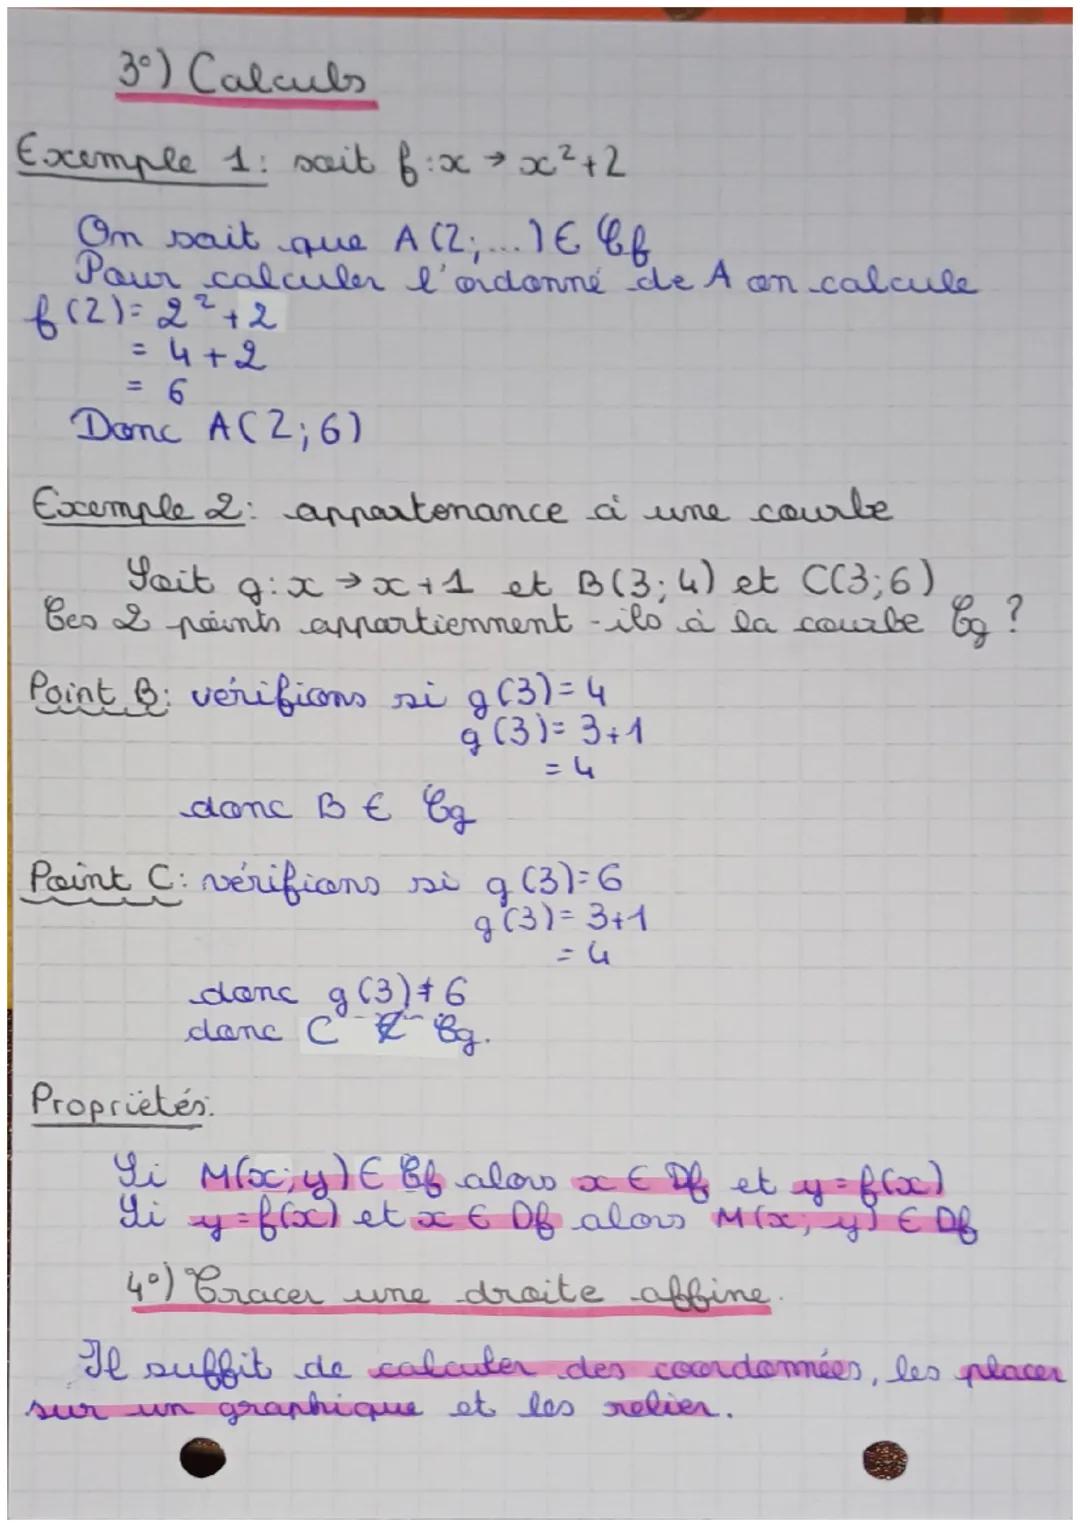 3°) Calculs
Exemple 1: soit f: x → x² + 2
On sait que A (2; ...) ∈ Cf
Pour calculer l'ordonné de A on calcule
f(2) = 2² + 2
= 4 + 2
= 6
Donc A(2; 6)
Exemple 2: appartonance à une courbe
Soit g: x → x + 1 et B(3; 4) et C(3; 6)
Ces 2 points appartiennent-ils à la courbe Cg ?
Point B: vérifions si g(3) = 4
g(3) = 3+1
= 4
donc B ∈ Cg
Point C: vérifions si g(3) = 6
g(3) = 3+1
= 4
donc g(3) ≠ 6
donc C ∉ Cg.
Propriétés:
Si M(x; y) ∈ Cf alors x ∈ Df et y = f(x)
Si y = f(x) et x ∈ Df alors M(x; y) ∈ Df
4°) Tracer une droite affine.
Il suffit de calculer des coordonnées, les placer
sur un graphique et les relier.